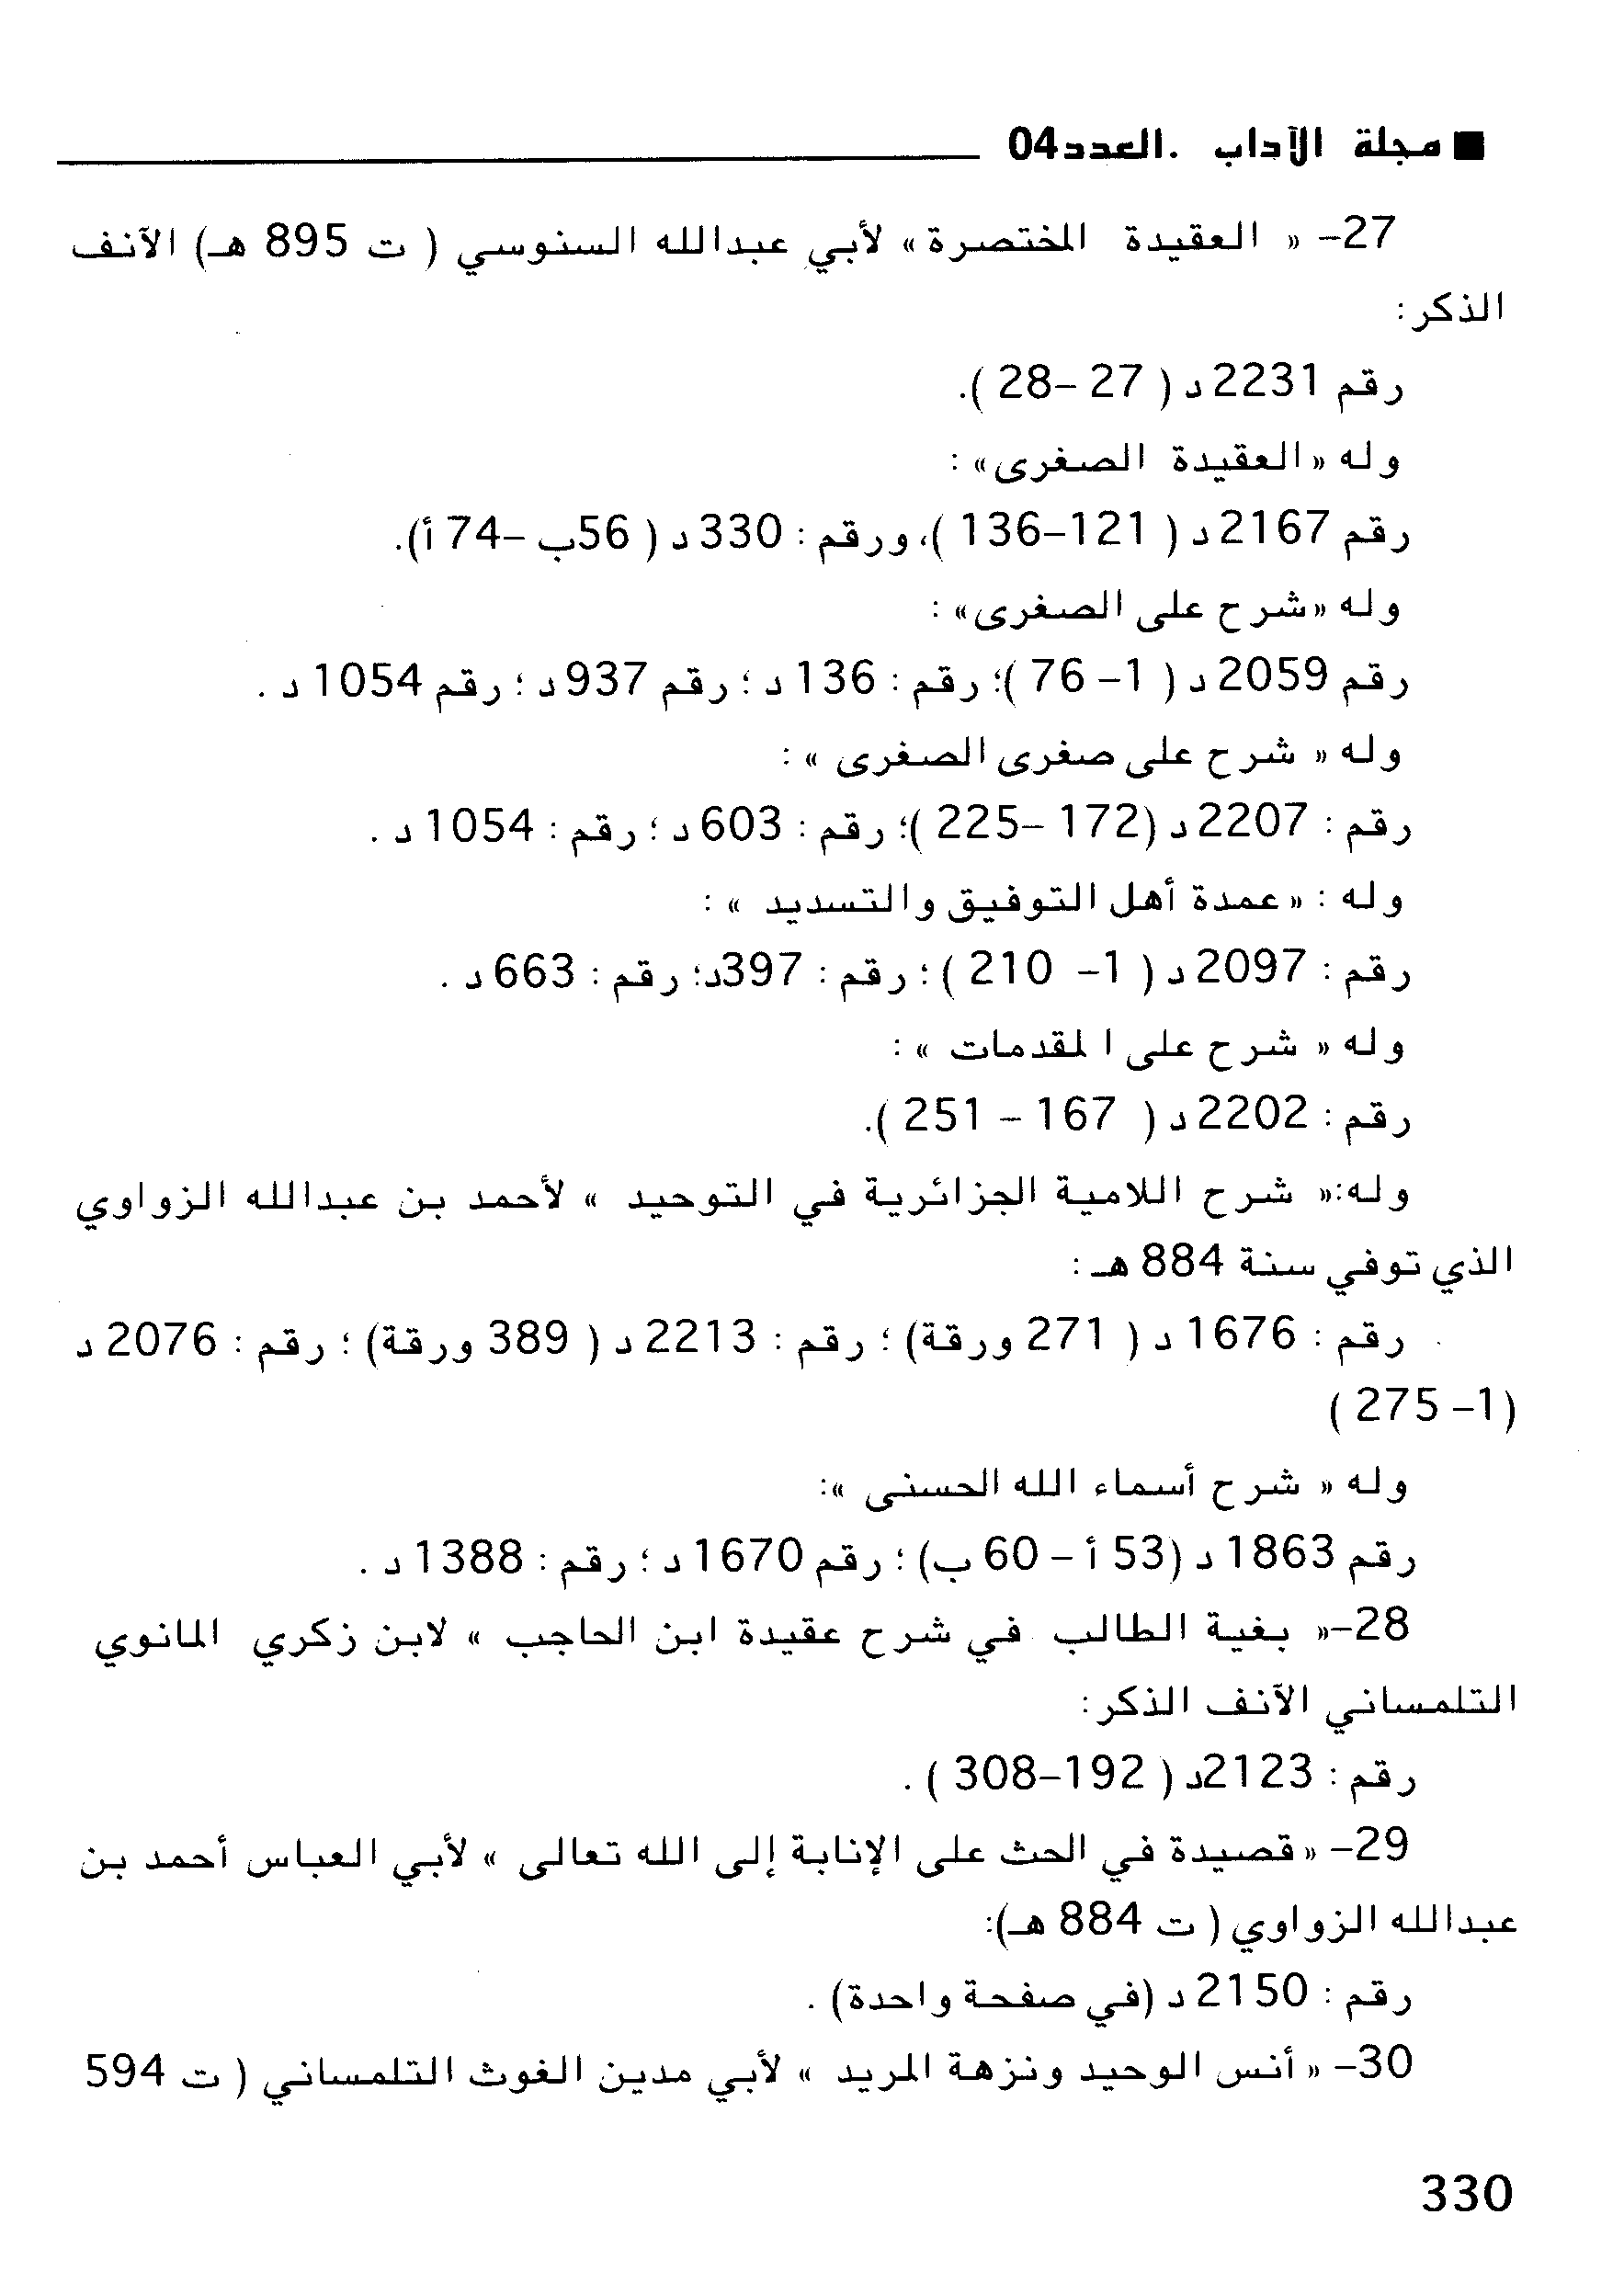 ■ مجلة الآداب .العدد04
27- « العقيدة المختصرة » لأبي عبدالله السنوسي ( ت 895 هـ) الآنف
الذكر:
رقم 2231 د ( 27 -28 ).
وله «العقيدة الصغرى» :
رقم 2167 د ( 121-136 )، ورقم : 330 د ( 56ب -74 أ).
وله «شرح على الصغرى» :
رقم 2059 د ( 1- 76 )؛ رقم : 136 د ؛ رقم 937 د ؛ رقم 1054 د .
وله « شرح على صغرى الصغرى » :
رقم : 2207 د (172 -225 )؛ رقم : 603 د ؛ رقم : 1054 د .
وله : «عمدة أهل التوفيق والتسديد » :
رقم : 2097 د ( 1- 210 ) ؛ رقم : 397د؛ رقم : 663 د .
وله « شرح على المقدمات » :
رقم : 2202 د ( 167 - 251 ).
وله:« شرح اللامية الجزائرية في التوحيد » لأحمد بن عبدالله الزواوي
الذي توفي سنة 884 هـ :
رقم : 1676 د ( 271 ورقة) ؛ رقم : 2213 د ( 389 ورقة) ؛ رقم : 2076 د
(1- 275 )
وله « شرح أسماء الله الحسنى »:
رقم 1863 د (53 أ - 60 ب) ؛ رقم 1670 د ؛ رقم : 1388 د .
28-« بغية الطالب في شرح عقيدة ابن الحاجب » لابن زكري المانوي
التلمساني الآنف الذكر:
رقم : 2123د ( 192-308 ) .
29- «قصيدة في الحث على الإنابة إلى الله تعالى » لأبي العباس أحمد بن
عبدالله الزواوي ( ت 884 هـ):
رقم : 2150 د (في صفحة واحدة) .
30- « أنس الوحيد ونزهة المريد » لأبي مدين الغوث التلمساني ( ت 594
330